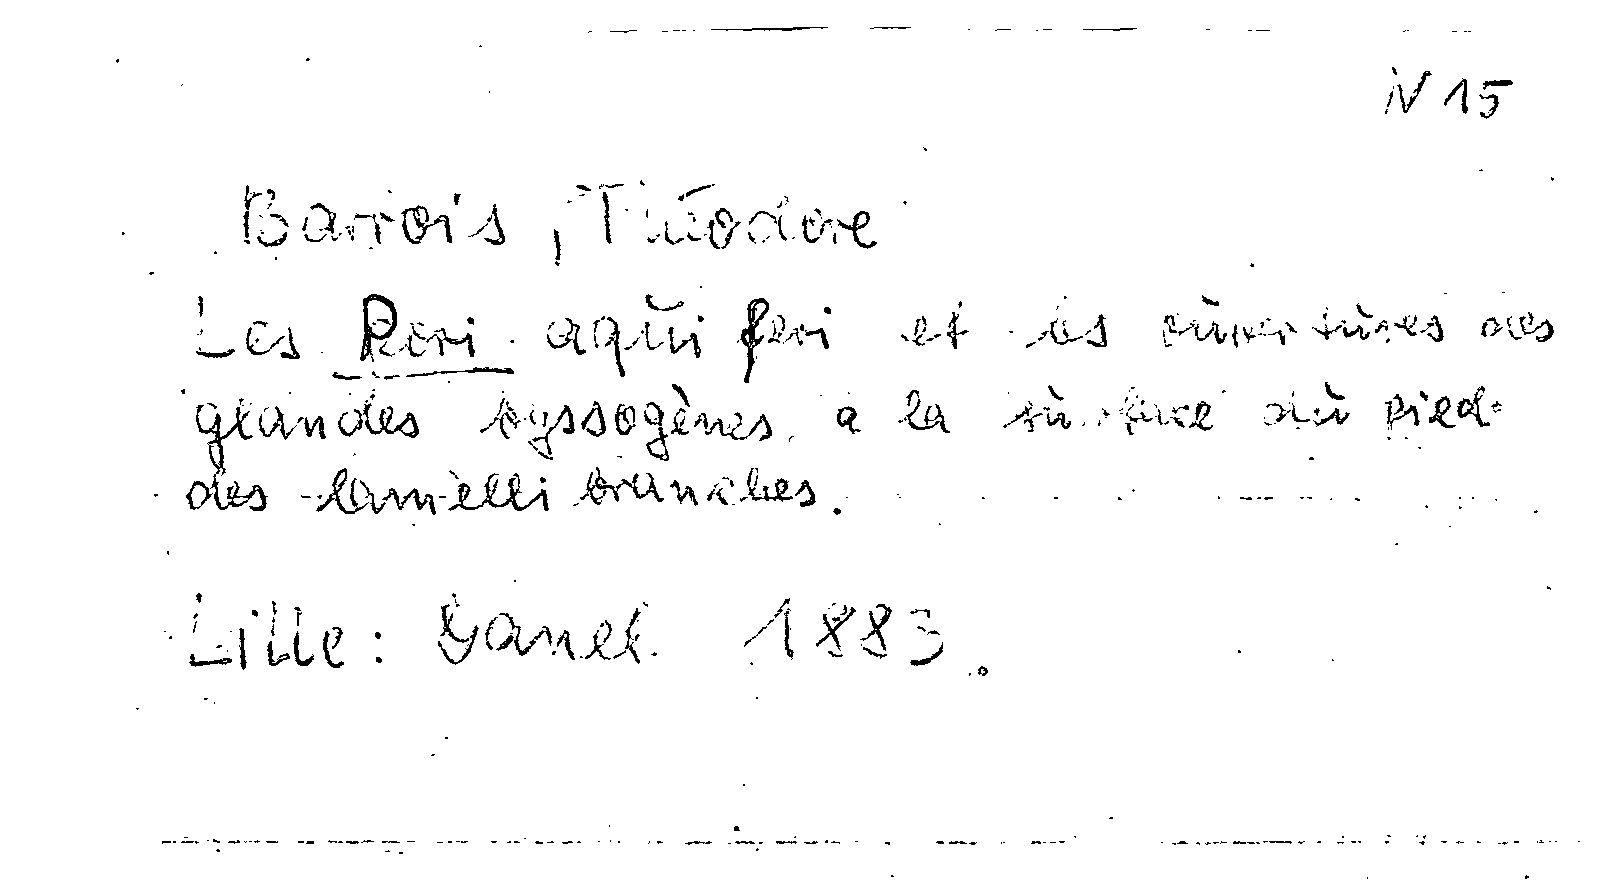 N 15
Barrois, Théodore
Les Pori aquiferi et les ouvertures des
glandes byssogènes a la surface du pied
des lamellibranches.
Lille: Danel 1883.